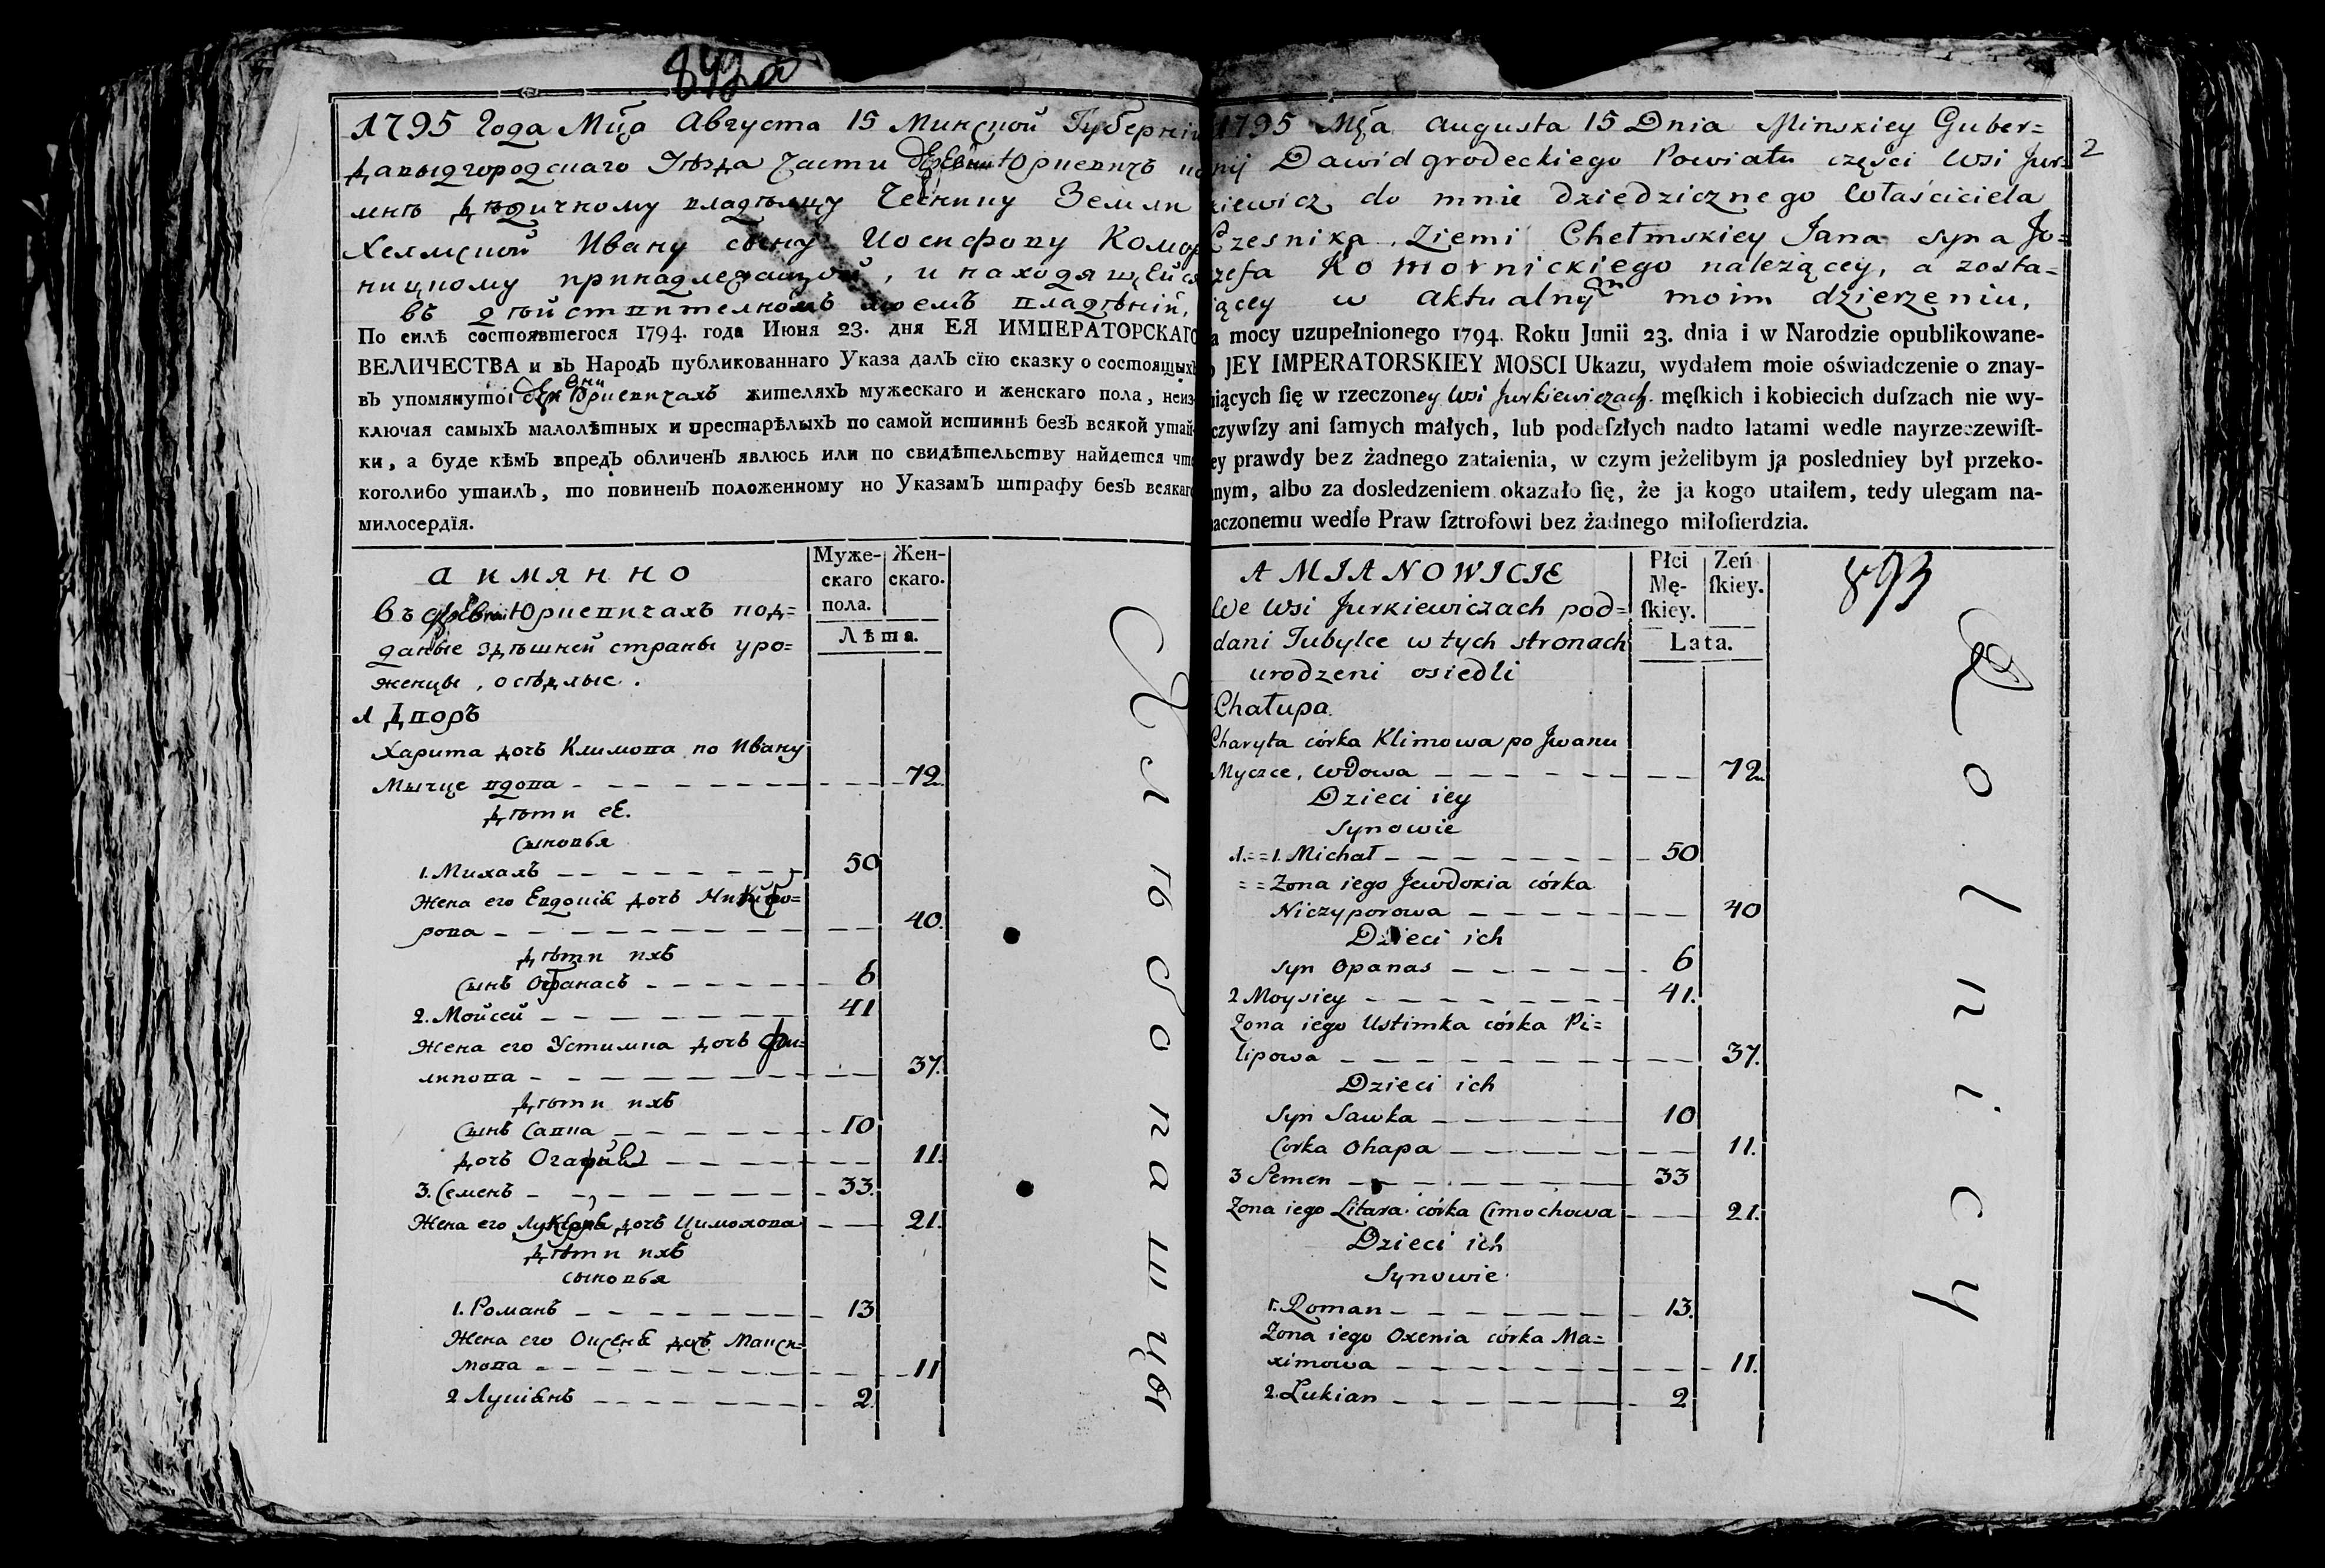 1795 Года Мца Августа 15 Минской Губерніи
Давыдгородскаго Уѣзда части деревни Юркевичъ
мнѣ дѣдичному владѣльцу Чеснику Земли
Хелмской Ивану сыну Иосифову Комор
ницкому принадлежащой, и находящейся
въ дѣйствителномъ моемъ владѣніи,
По силѣ состоявшегося 1794. года Июня 23. дня ЕЯ ИМПЕРАТОРСКАГО
ВЕЛИЧЕСТВА и въ Народъ публикованнаго Указа далъ сїю сказку о состоящихъ
въ упомянутой деревни Юркевичахъ жителяхъ мужескаго и женскаго пола, неиз-
ключая самыхъ малолѣтныхъ и престарѣлыхъ по самой истиннѣ безъ всякой утай-
ки, а буде кѣмъ впредъ обличенъ явлюсь или по свидѣтельству найдется что
коголибо утаилъ, то повиненъ положенному по Указамъ штрафу безъ всякаго
милосердїя.
а имянно
Муже-
скаго
пола.
Жен-
скаго.
Лѣта.
въ деревни Юркевичахъ под=
даные здѣшней страны уро=
женцы, осѣдлые.
1 Дворъ
Харита дочь Климова по Ивану
Мычце вдова 72
дѣти еѣ.
сыновья
1. Михалъ 50
Жена его Евдокія дочь Никифо=
рова 40.
дѣти ихъ
сынъ Офанасъ 6
2. Мойсей 41
Жена его Устимка дочь Фи=
липова 37.
дѣти ихъ
сынъ Савка 10
дочь Огафія 11.
3. Семенъ 33.
Жена его дочь Цимохова 21.
дѣти ихъ
сыновья
1. Романъ 13
Жена его Оксеня дочь Макси=
мова 11
2 Лукіянъ 2.
1795 Mca Augusta 15 Dnia Minskiey Guber=
nij Dawidgrodeckiego Powiatu części Wsi Jur=
kiewicz do mnie Dziedzicznego Właściciela
Czesnika Ziemi Chełmskiey Jana syna Jo=
zefa Komornickiego należącey, a zosta=
iącey w aktualnym moim dzierzeniu,
a mocy uzupełnionego 1794. Roku Junii 23. dnia i w Narodzie opublikowane-
o JEY IMPERATORSKIEY MOSCI Ukazu, wydałem moie oświadczenie o znay-
iących ſię w rzeczoney Wsi Jurkiewiczach męſkich i kobiecich duſzach nie wy-
czywſzy ani ſamych małych, lub podeſzłych nadto latami wedle nayrzeczewiſt-
ey prawdy bez żadnego zataienia, w czym jeżelibym ja posledniey był przeko-
nym, albo za dosledzeniem okazało ſię, że ja kogo utaiłem, tedy ulegam na-
aczonemu wedle Praw ſztrofowi bez żadnego miłoſierdzia.
2
893
A MIANOWICIE
Płci
Mę-
ſkiey.
Zeń
ſkiey.
Lata.
We Wsi Jurkiewiczach pod=
dani Tubylce w tych stronach
urodzeni osiedli
Chałupa.
Charyta córka Klimowa po Jwanu
Myczce, Wdowa 72
Dzieci iey
Synowie
1. = = 1. Michał 50
= = Zona iego Jewdokia córka
Niczyporowa 40
Dzieci ich
Syn Opanas 6
2 Moysiey 41.
Zona iego Ustimka córka Pi=
lipowa 37.
Dzieci ich
Syn Sawka 10
Corka Ohapa 11.
3 Semen 33
Zona iego Litara córka Cimochowa 21.
Dzieci ich
Synowie
1. Roman 13.
Zona iego Oxenia córka Ma=
ximowa 11.
2. Lukian 2